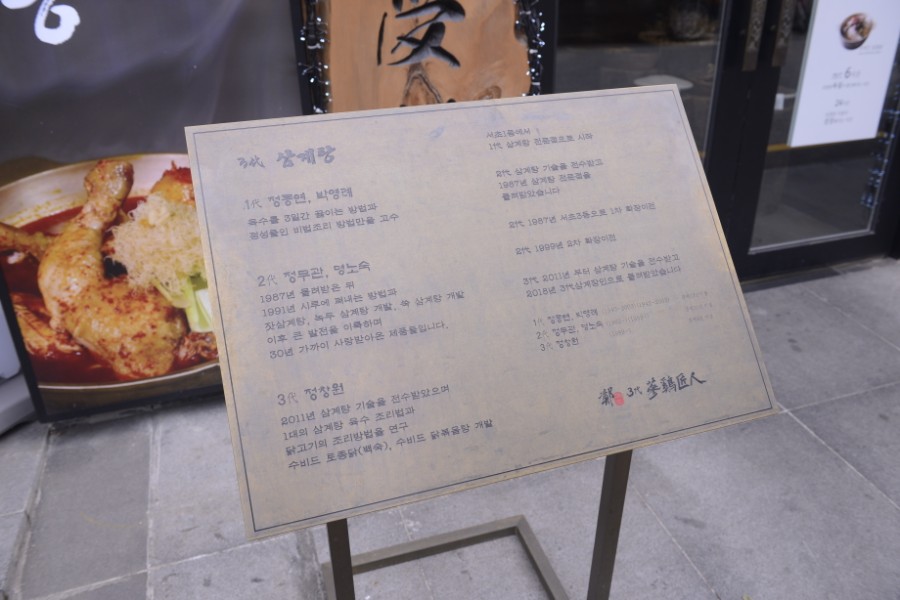 愛
3代 삼계탕
1代 정풍연, 박영례
육수를 3일간 끓이는 방법과
정성들인 비법조리 방법만을 고수
2代 정무관, 명노숙
1987년 물려받은 뒤
1991년 시루에 쪄내는 방법과
잣삼계탕, 녹두 삼계탕 개발, 쑥 삼계탕 개발
이후 큰 발전을 이룩하며
30년 가까이 사랑받아온 제품들입니다.
3代 정창원
2011년 삼계탕 기술을 전수받았으며
1대의 삼계탕 육수 조리법과
닭고기의 조리방법을 연구
수비드 토종닭(백숙), 수비드 닭볶음탕 개발
서초1동에서
1代 삼계탕 전문점으로 시작
2代 삼계탕 기술을 전수받고
1987년 삼계탕 전문점을
물려받았습니다
2代 1987년 서초3동으로 1차 확장이전
2代 1999년 2차 확장이전
3代 2011년 부터 삼계탕 기술을 전수받고
2018년 3代삼계장인으로 물려받았습니다
1代 정풍연, 박영례
2代 정무관, 명노숙
3代 정창원
3代 蔘鷄匠人